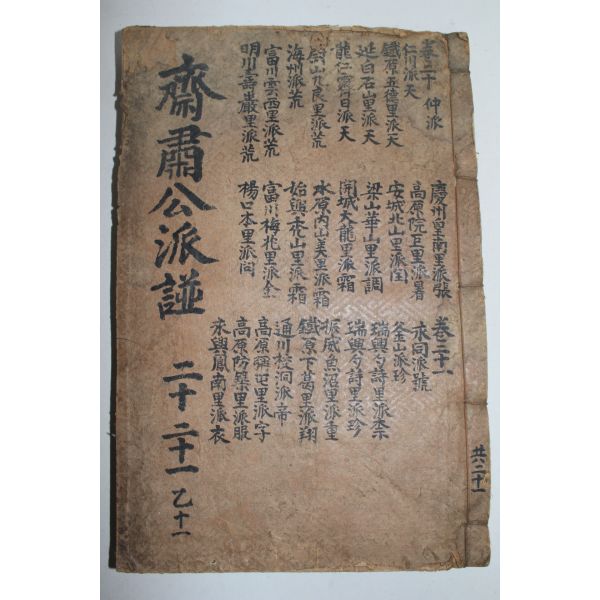 卷二十 仲派
仁川派天
鐵原五德里派天
延白石山里派天
龍仁霽日派天
蔚山九良里派荒
海州派荒
富川雲西里派荒
明川壽巖里派荒
慶州皇南里派張
高原院巨里派暑
安城北山里派閏
梁山華山里派調
開城大龍里派霜
水原內山美里派霜
始興秀山里派霜
富川梅兆里派金
楊口本里派岡
卷二十一
永同派號
釜山派珍
瑞興夕詩里派柰
瑞興夕詩里派珍
振威魚沼里派重
鐵原下葛里派翔
通川校洞派帝
高原獬屯里派字
高原防築里派服
永興鳳南里派衣
齋肅公派諩 二十 二十一 乙十一
共六二十一